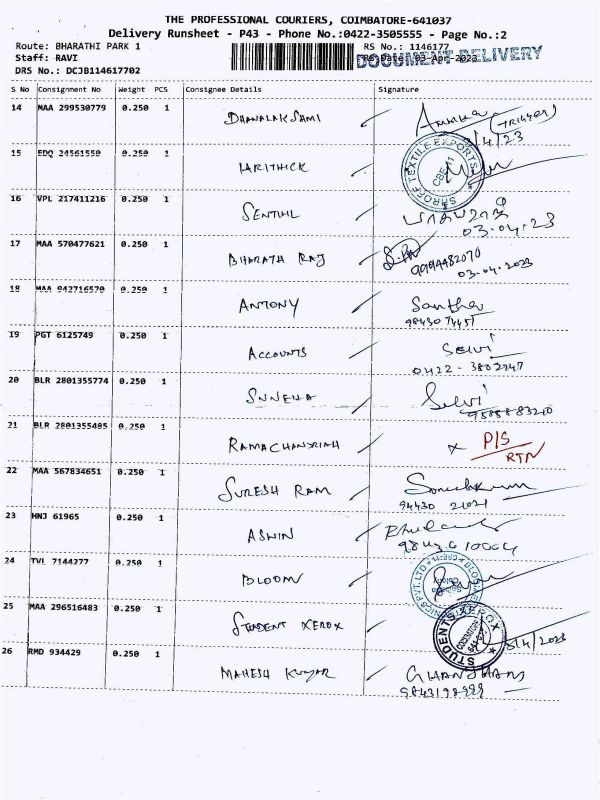 THE PROFESSIONAL COURIERS, COIMBATORE-641037
Delivery Runsheet - P43 - Phone No.:0422-3505555 - Page No.:2
Route: BHARATHI PARK 1 RS No.: 1146177
Staff: RAVI Rs Date: 03-Apr-2023 DOCUMENT DELIVERY
DRS No.: DCJB114617702
S No Consignment No Weight PCS Consignee Details Signature
14 MAA 299530779 0.250 1 DHANALAKSHMI
/4/23
15 EDQ 24561550 0.250 1 HARITHICK
SHROFF TEXTILE EXPORTS CBE-11
16 VPL 217411216 0.250 1 SENTHIL
03.04.23
17 MAA 570477621 0.250 1 BHARATH RAJ
9994482070
03-04-2023
18 MAA 942716570 0.250 1 ANTONY Santha
9843074451
19 PGT 6125749 0.250 1 ACCOUNTS Selvi
0422-3802247
20 BLR 2801355774 0.250 1 SNNEHA Selvi
9588883210
21 BLR 2801355405 0.250 1 RAMACHANDRIAH x P/S
RTN
22 MAA 567834651 0.250 1 SURESH RAM
94430 21021
23 HNJ 61965 0.250 1 ASWIN
24 TVL 7144277 0.250 1 BLOOM
25 MAA 296516483 0.250 1 STUDENT XEROX
STUDENTS XEROX COIMBATORE
/4/2023
26 RMD 934429 0.250 1 MAHESH KUMAR
9843198989